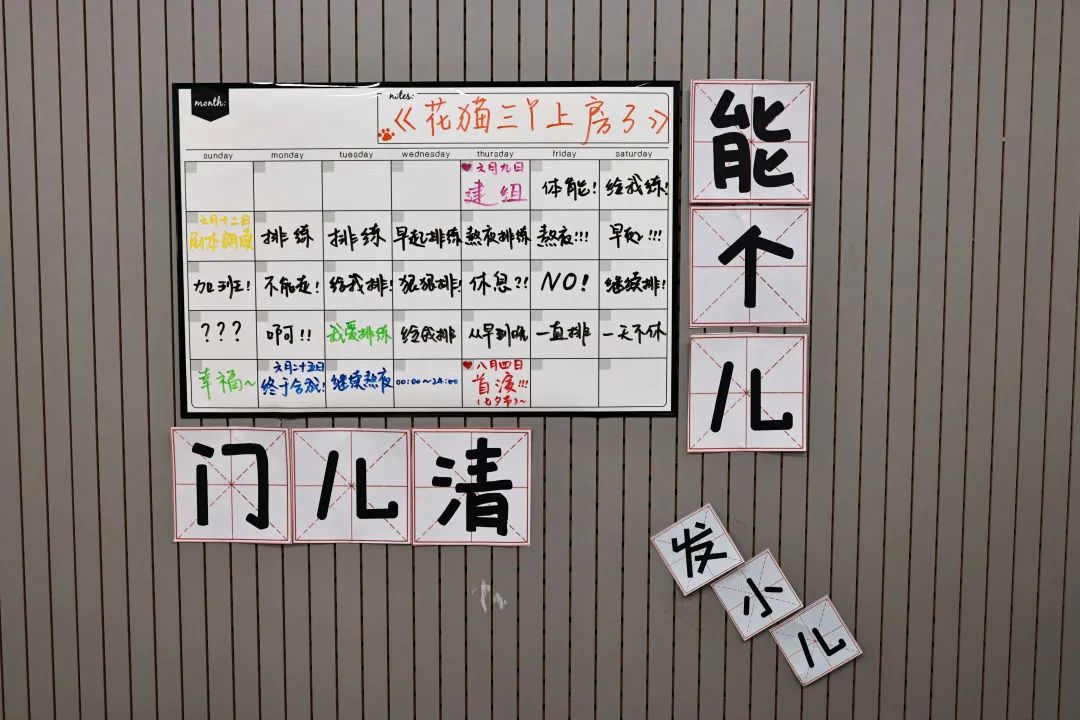 month:
notes:
《花猫三丫上房了》
sunday monday tuesday wednesday thursday friday saturday
六月九日
建组 体能! 给我练!
六月十二日
剧本朗读 排练 排练 早起排练 熬夜排练 熬夜!!! 早起!!!
加班! 不能走! 给我排! 狠狠排! 休息?! NO! 继续排!
??? 啊!! 我爱排练 给我排 从早到晚 一直排 一天不休
六月二十五日 八月四日
幸福~ 终于合成! 继续熬夜 00:00~24:00 首演!!!
(七夕节)~
能
个
儿
门儿清
发
小
儿